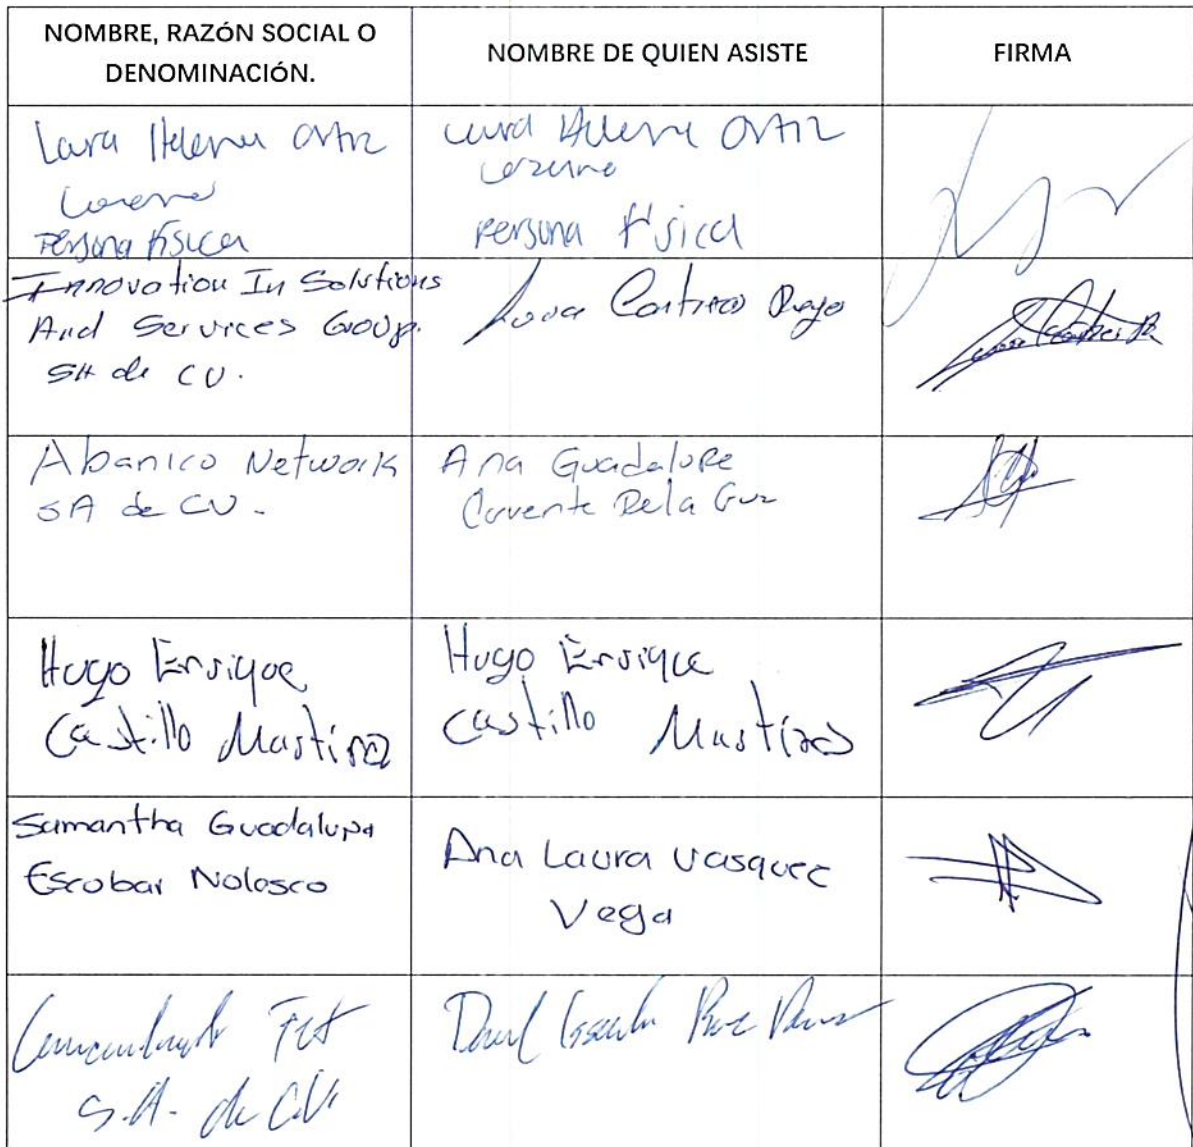 NOMBRE, RAZÓN SOCIAL O
DENOMINACIÓN.
NOMBRE DE QUIEN ASISTE
FIRMA
Laura Helena Ortiz
Persona física
Helena Ortiz
Persona física
Innovation In Solutions
And Services Group.
SA de CV.
Contreras
Abanico Network
SA de CV.
Ana Guadalupe
De la Cruz
Hugo Enrique
Castillo Martinez
Hugo Enrique
Castillo Martinez
Samantha Guadalupe
Escobar Nolasco
Ana Laura Vasquez
Vega
S.A. de C.V.